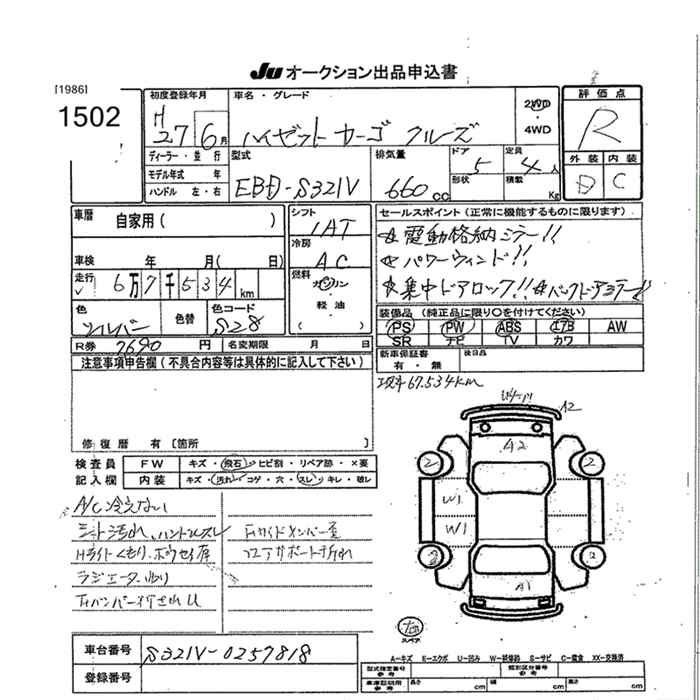 JU オークション出品申込書
[1986]
1502
初度登録年月
H 27年 6月
車名・グレード
ハイゼットカーゴ クルーズ
2WD
・
4WD
評価点
R
外装 内装
D C
ディーラー・並行
モデル年式 年
ハンドル 左・右
型式
EBD-S321V
排気量
660 cc
ドア 5
形状
定員 4人
積載 Kg
車暦 自家用( )
車検 年 月( 日)
走行 6万7千534km
色 シルバー 色替 色コード S28
シフト
IAT
冷房
AC
燃料
ガソリン
・
軽油
( )
セールスポイント(正常に機能するものに限ります)
☆電動格納ミラー!!
☆パワーウィンド!!
☆集中ドアロック!! ☆バックドアミラー!!
装備品(純正品に限り○を付けてください)
PS PW ABS エアB AW
SR ナビ TV カワ
R券 7690円 名変期限 月 日
新車保証書
有・無
後日品
注意事項申告欄(不具合内容等は具体的に記入して下さい)
現車67,534km
修復暦 有〔箇所 〕
検査員
記入欄
FW キズ・飛石・ヒビ割・リペア跡・×要
内装 キズ・汚れ・コゲ・穴・スレ・キレ・破レ
A/C冷えない
シート汚れ、ハンドルスレ
Hライトくもり、
A2
A2
2 2
W1
W1
2 2
A1
スペア
車台番号 S321V-0257818
登録番号
A-キズ E-エクボ U-凹み W-補修跡 S-サビ C-腐食 XX-交換済
型式指定番号
参考
類別区分番号
参考
車庫証明用
参考
長さ cm 幅 cm 高さ cm